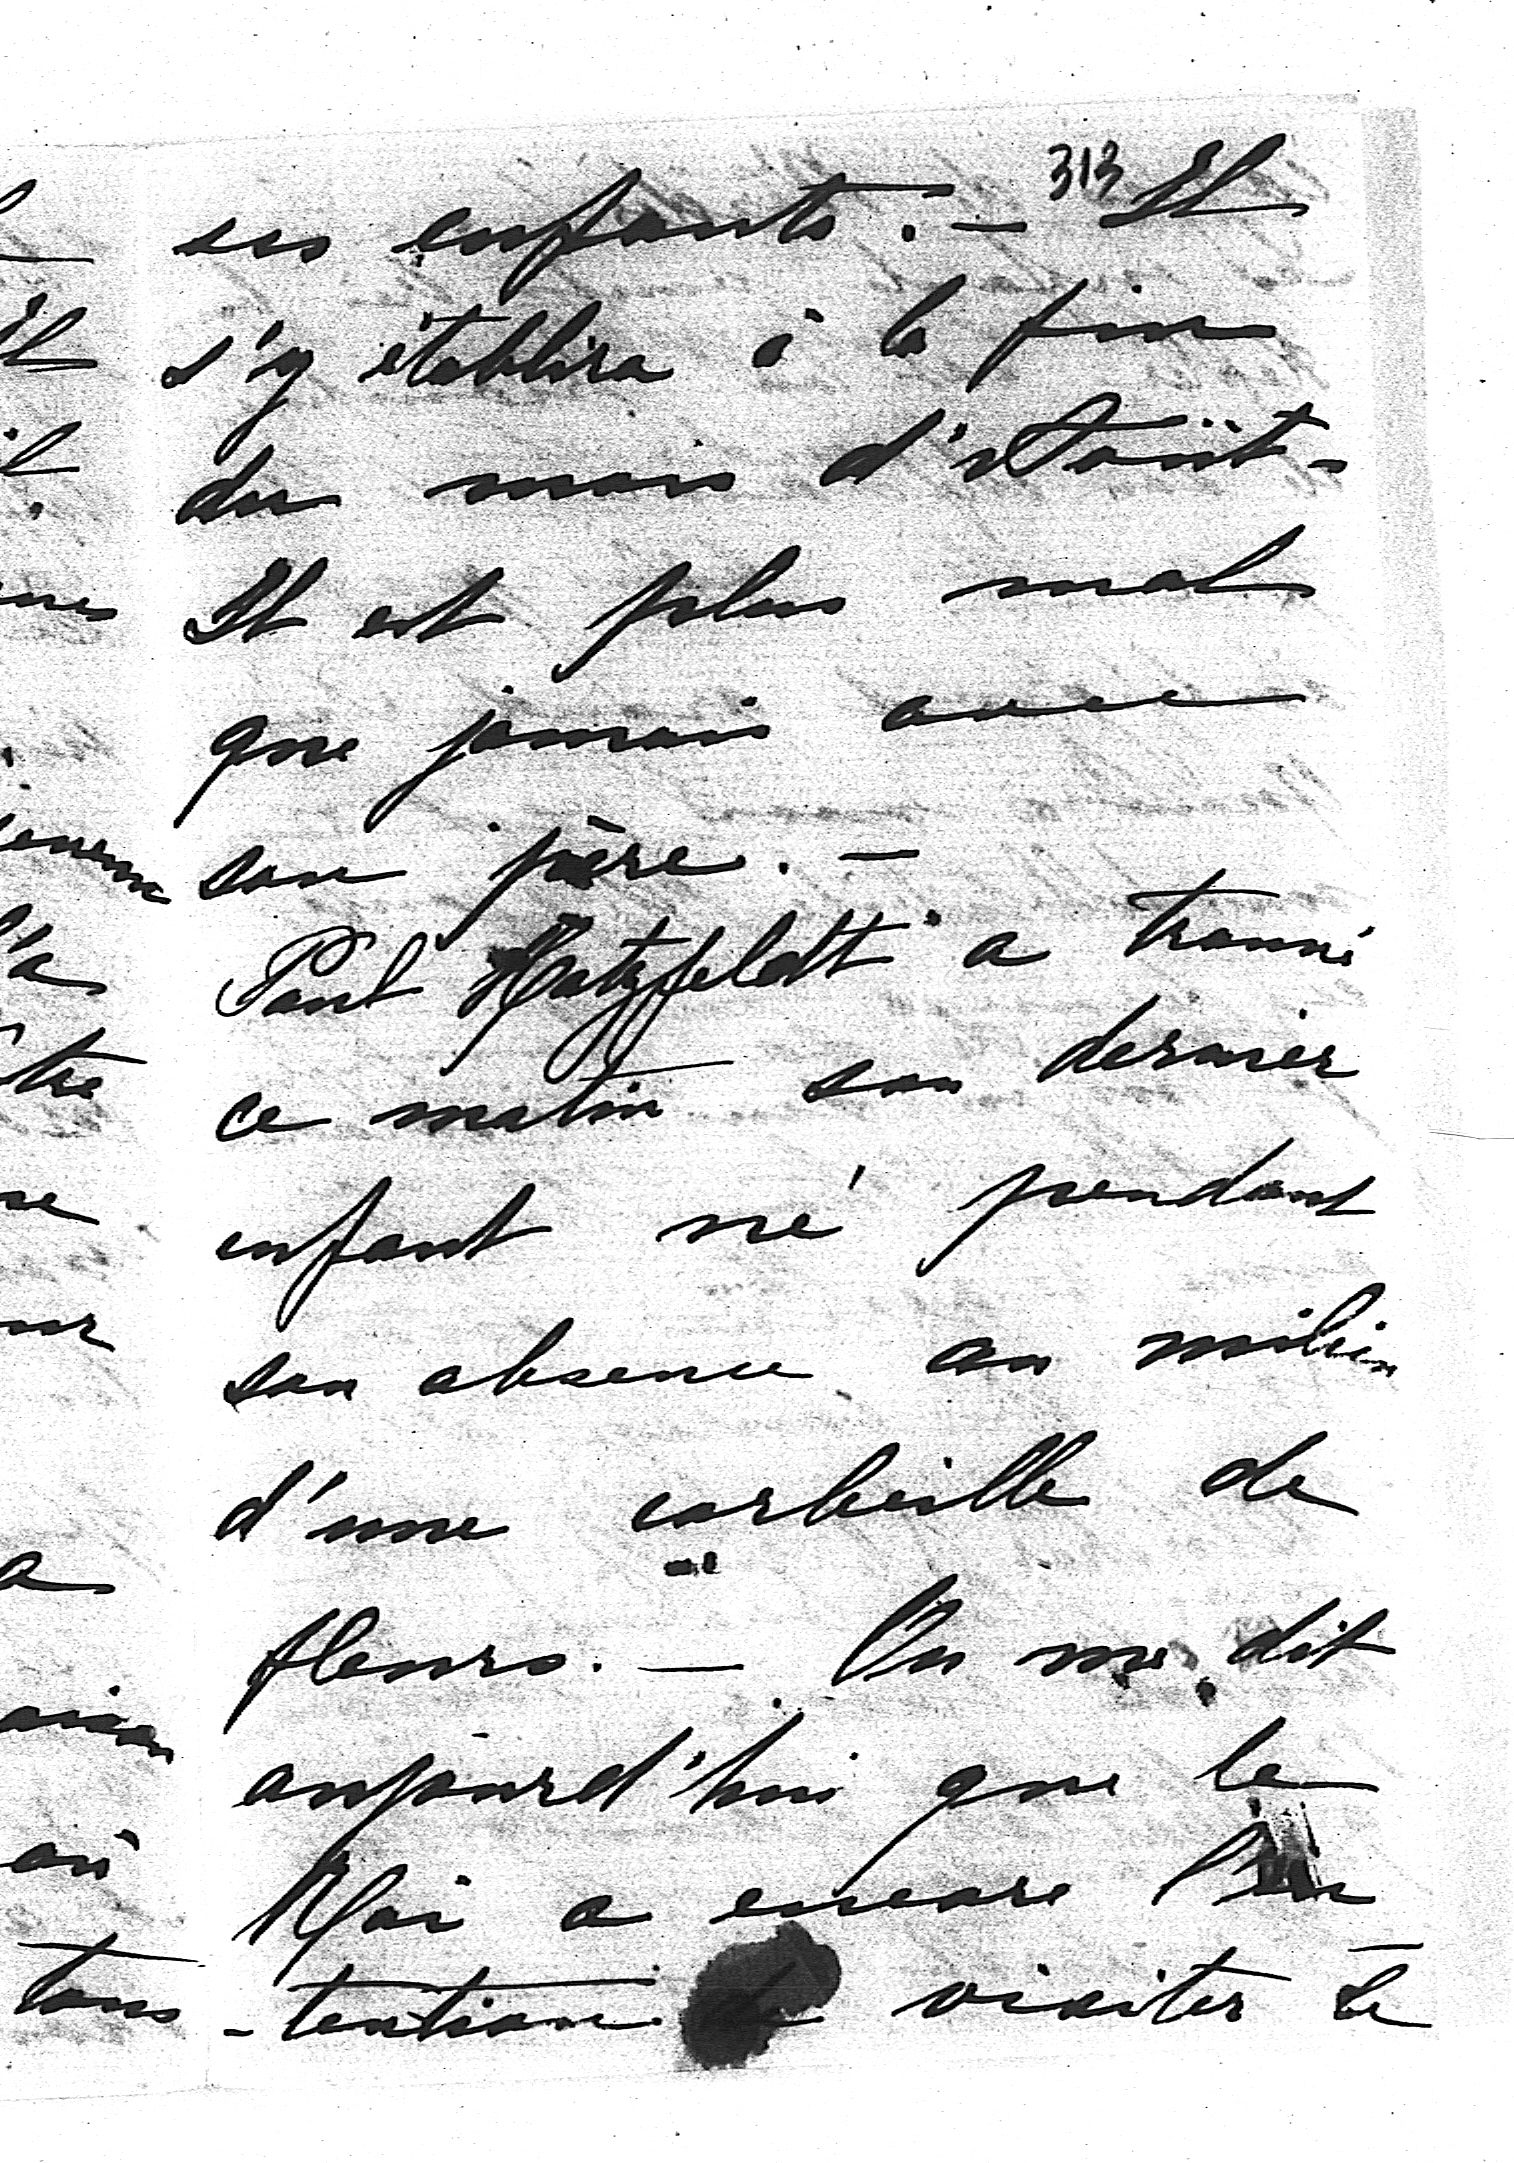 313
ses enfants. — Il
s'y établira à la fin
du mois d'Août -
Il est plus mal
que jamais avec
son père. —
Paul Hatzfeldt a trouvé
ce matin son dernier
enfant né pendant
son absence au milieu
d'une corbeille de
fleurs. — On me dit
aujourd'hui que le
Roi a encore l'in
-tention visiter le